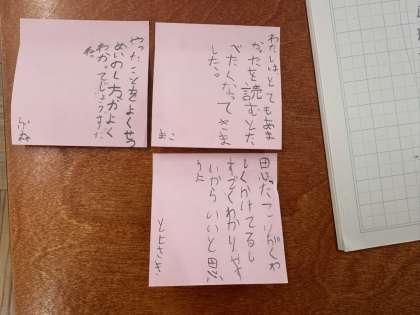 わたしは、とてもあま
かったを読むとた
べたくなってきま
した。
やったことをよくせつ
めいのし方がよく
わかってじょうずだ
ね。
思ったことがくわ
しくかけてるし
すごくわかりやす
いからいいと思
うよ
とよさき